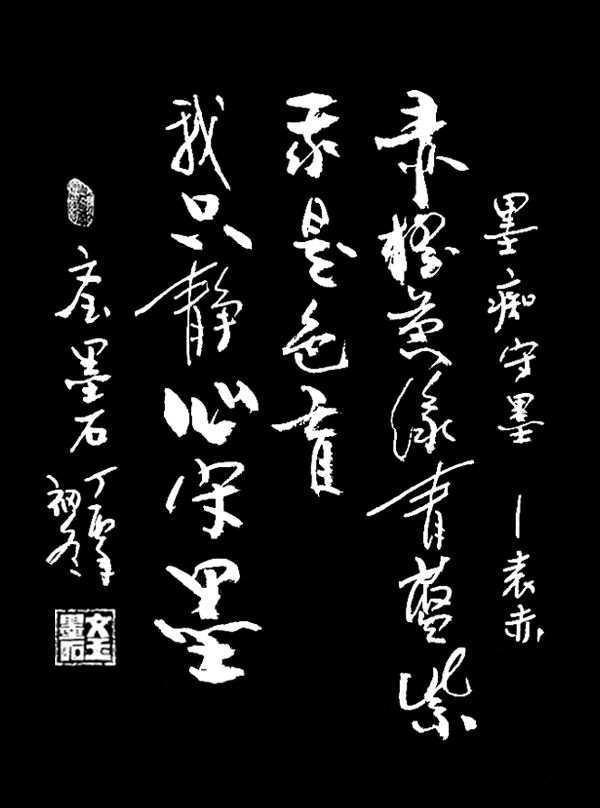 墨痴守墨 — 袁赤
赤橙黄绿青蓝紫
我是色盲
我只静心守墨
文玉墨石 丁酉年
初冬
文玉墨石